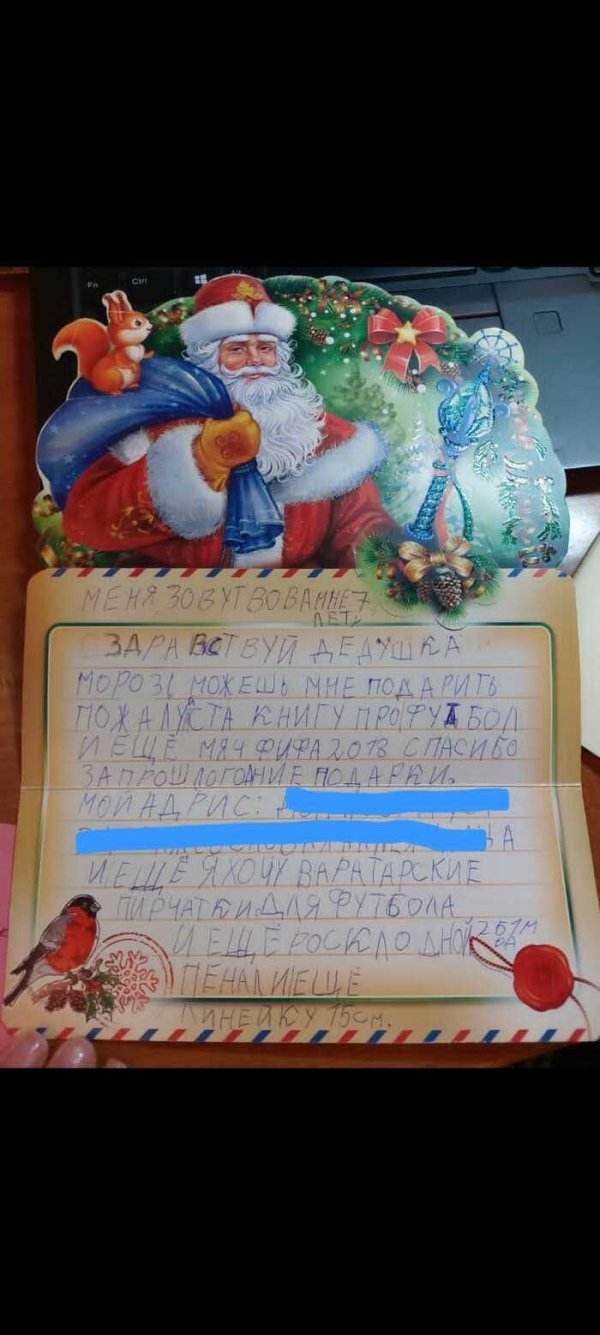 Fn Ctrl
МЕНЯ ЗОВУТ ВОВА МНЕ 7
ЛЕТ
ЗДРАВСТВУЙ ДЕДУШКА
МОРОЗ! МОЖЕШЬ МНЕ ПОДАРИТЬ
ПОЖАЛУЙСТА КНИГУ ПРО ФУТБОЛ
И ЕЩЁ МЯЧ ФИФА 2018 СПАСИБО
ЗА ПРОШЛОГОДНИЕ ПОДАРКИ.
МОЙ АДРИС:
И ЕЩЁ Я ХОЧУ ВАРАТАРСКИЕ
ПИРЧАТКИ ДЛЯ ФУТБОЛА
И ЕЩЁ РОСКЛОДНОЙ
ПЕНАЛ И ЕЩЁ
ЛИНЕЙКУ 15 см.